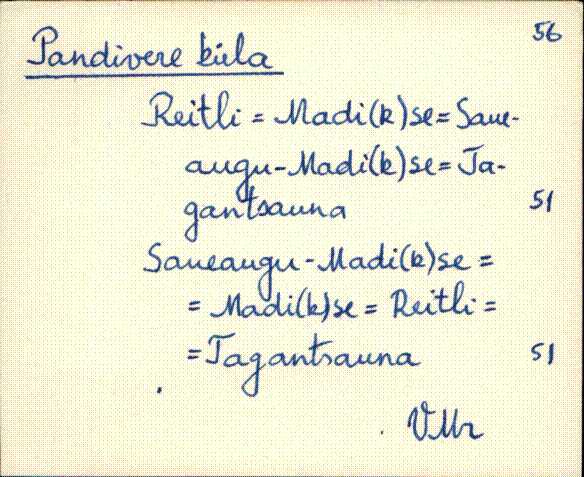 56
Pandivere küla
Reitli = Madi(k)se = Saue-
augu-Madi(k)se = Ta-
gantsauna 51
Saueaugu-Madi(k)se =
= Madi(k)se = Reitli =
= Tagantsauna 51
VMr